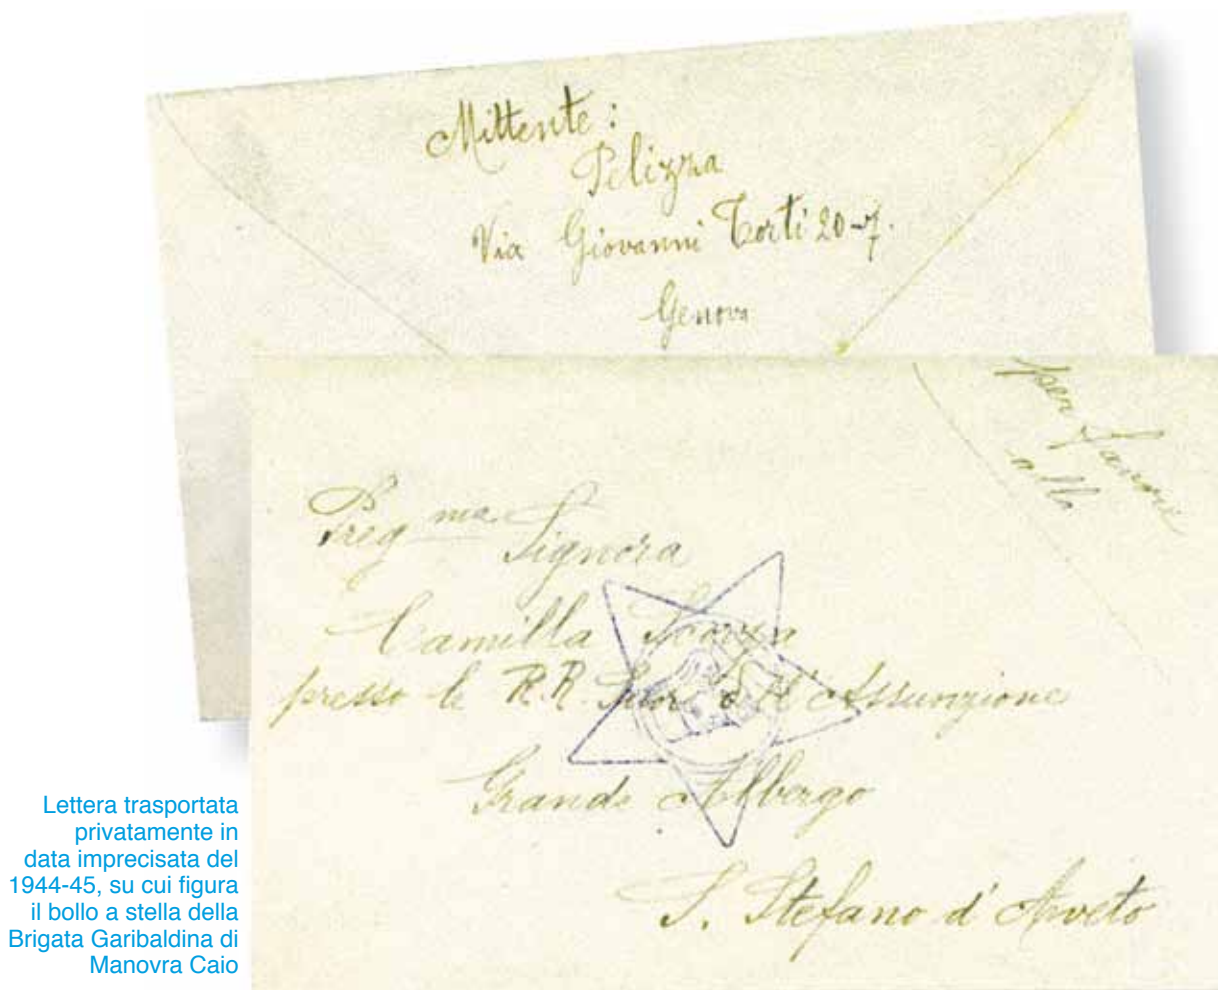 Mittente :
Pelizza
Via Giovanni Torti 20-7.
Genova
per favore
Preg ma Signora
Camilla
presso le R.R. Suore dell'Assunzione
Grande Albergo
S. Stefano d'Aveto
Lettera trasportata
privatamente in
data imprecisata del
1944-45, su cui figura
il bollo a stella della
Brigata Garibaldina di
Manovra Caio